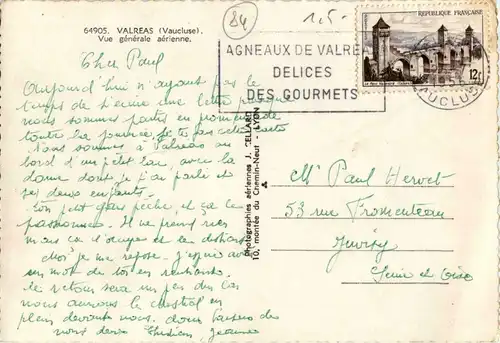 64905. VALREAS (Vaucluse).
Vue générale aérienne.
84
1,50
AGNEAUX DE VALREA
DELICES
DES GOURMETS
REPUBLIQUE FRANÇAISE
12f
VAUCLUSE
Cher Paul
Aujourd'hui n'ayant pas le
temps de t'écrire une lettre puisque
nous sommes partis en promenade
toute la journée, je te fais cette carte
Nous sommes à Valréas au
bord d'un petit lac, avec la
dame dont je t'ai parlé et
ses deux enfants.
Ton petit gars pêche, et ça le
passionne. Il ne prend rien
mais ça l'occupe et le distrait
Moi je me repose. J'espère avoir
un mot de toi en rentrant.
Le retour sera un peu dur car
nous aurons le mistral en
plein devant nous. doux baisers de
nous deux Jeanne
photographies aériennes J. CELLARD
10, montée du Chemin-Neuf - LYON
Mr Paul Hervet
53 rue Fromenteau
Juvisy
Seine et Oise